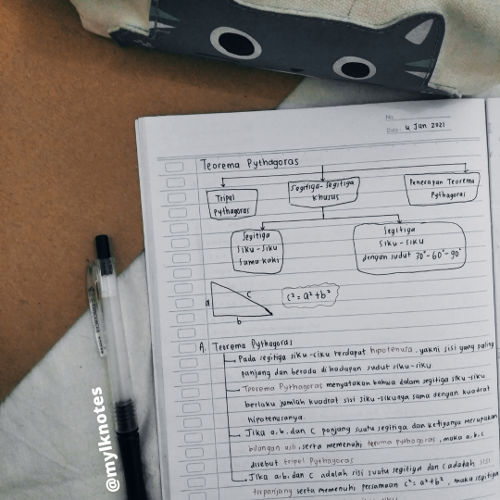 No.
Date: 4 Jan 2021
Teorema Pythagoras
Tripel
Pythagoras
Segitiga-Segitiga
Khusus
Penerapan Teorema
Pythagoras
Segitiga
Siku-Siku
Sama kaki
Segitiga
Siku-Siku
dengan sudut 30°-60°-90°
a
c
b
c² = a² + b²
A. Teorema Pythagoras
Pada segitiga siku-siku terdapat hipotenusa, yakni sisi yang paling
panjang dan berada di hadapan sudut siku-siku
Teorema Pythagoras menyatakan bahwa dalam segitiga siku-siku
berlaku jumlah kuadrat sisi siku-sikunya sama dengan kuadrat
hipotenusanya.
Jika a, b, dan c panjang suatu segitiga dan ketiganya merupakan
bilangan asli, serta memenuhi teorema pythagoras, maka a, b, c
disebut tripel Pythagoras
Jika a, b, dan c adalah sisi suatu segitiga dan c adalah sisi
terpanjang serta memenuhi persamaan c² = a² + b², maka segitiga
@mylknotes